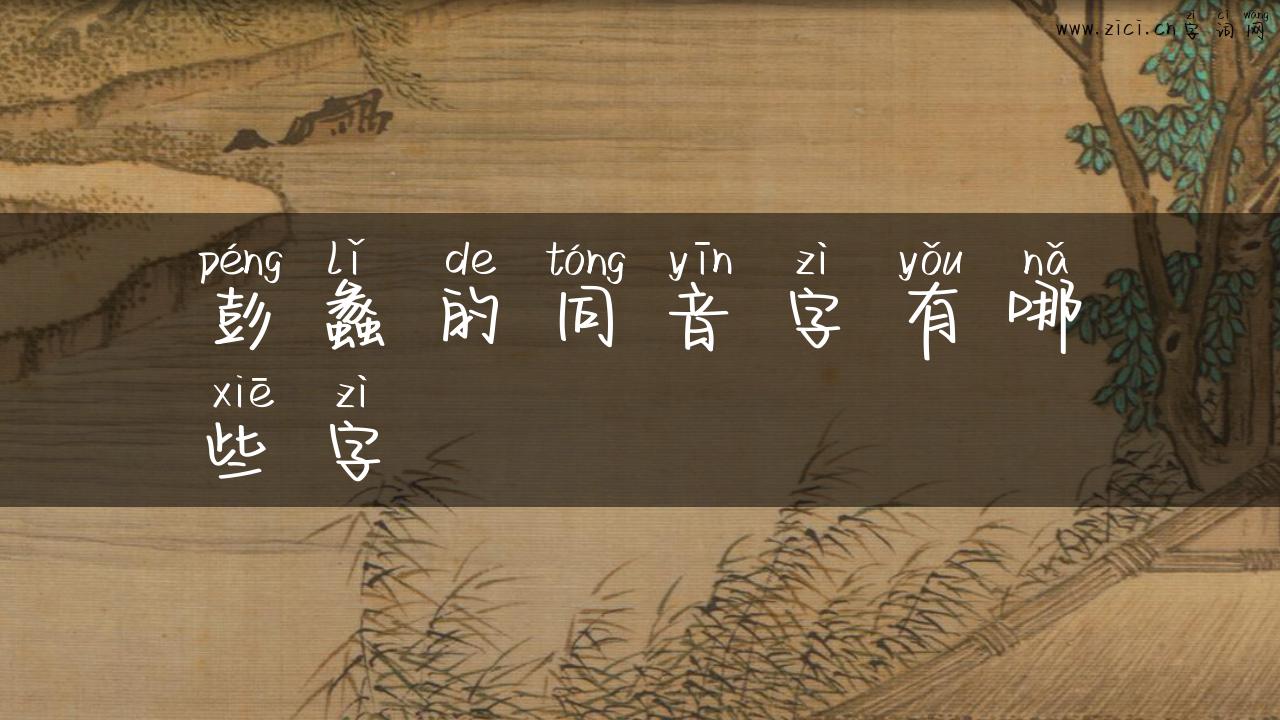 zì cí wǎng
www.zici.cn字词网
péng lǐ de tóng yīn zì yǒu nǎ
彭蠡的同音字有哪
xiē zì
些字